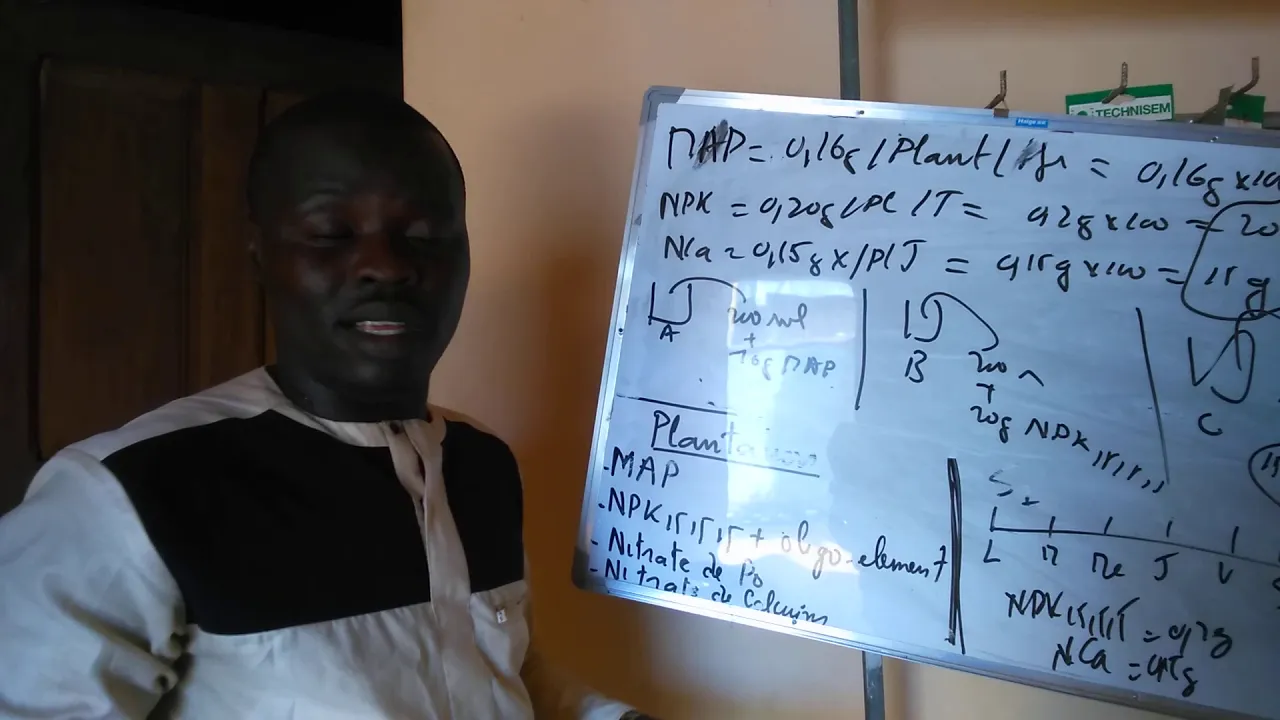 TECHNISEM
MAP = 0,16g/Plant/Jr = 0,16g x 100
NPK = 0,20g/Pl/J = 0,2g x 100 = 20
NCa = 0,15g x/Pl J = 0,15g x 100 = 15g
A
200 ml
+
16g MAP
B
200
+
20g NPK 15,15,15
C
Plantation
- MAP
- NPK 15,15,15 + oligo-element
- Nitrate de Po
- Nitrate de Calcium
S2
L M Me J V
NPK 15,15,15 = 0,2g
NCa = 0,15g